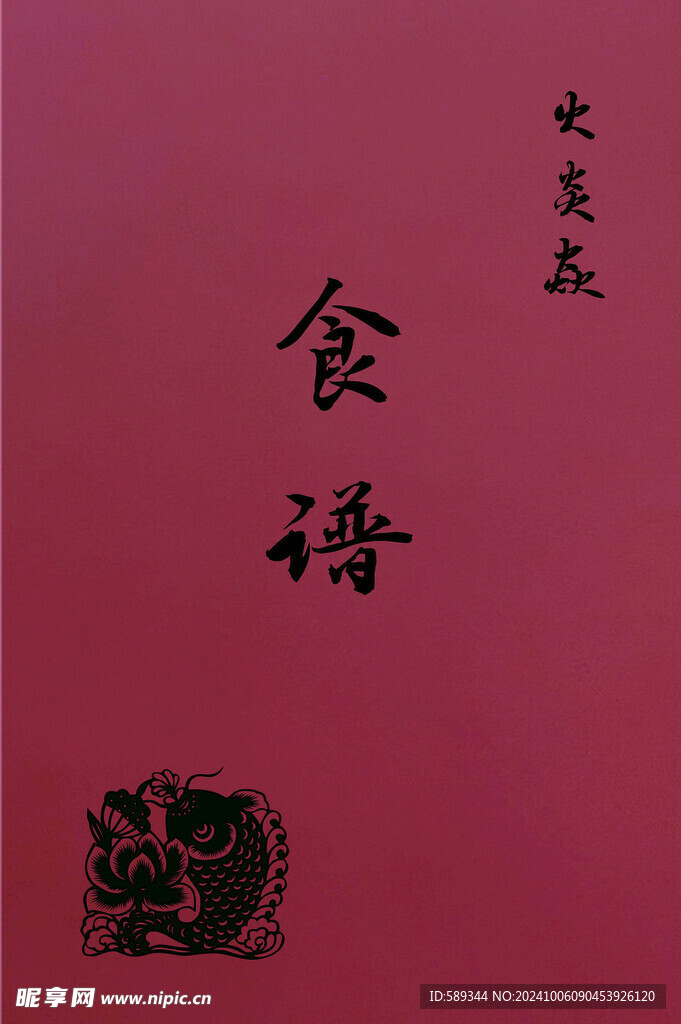 火炎焱
食谱
昵享网 www.nipic.cn
ID:589344 NO:20241006090453926120